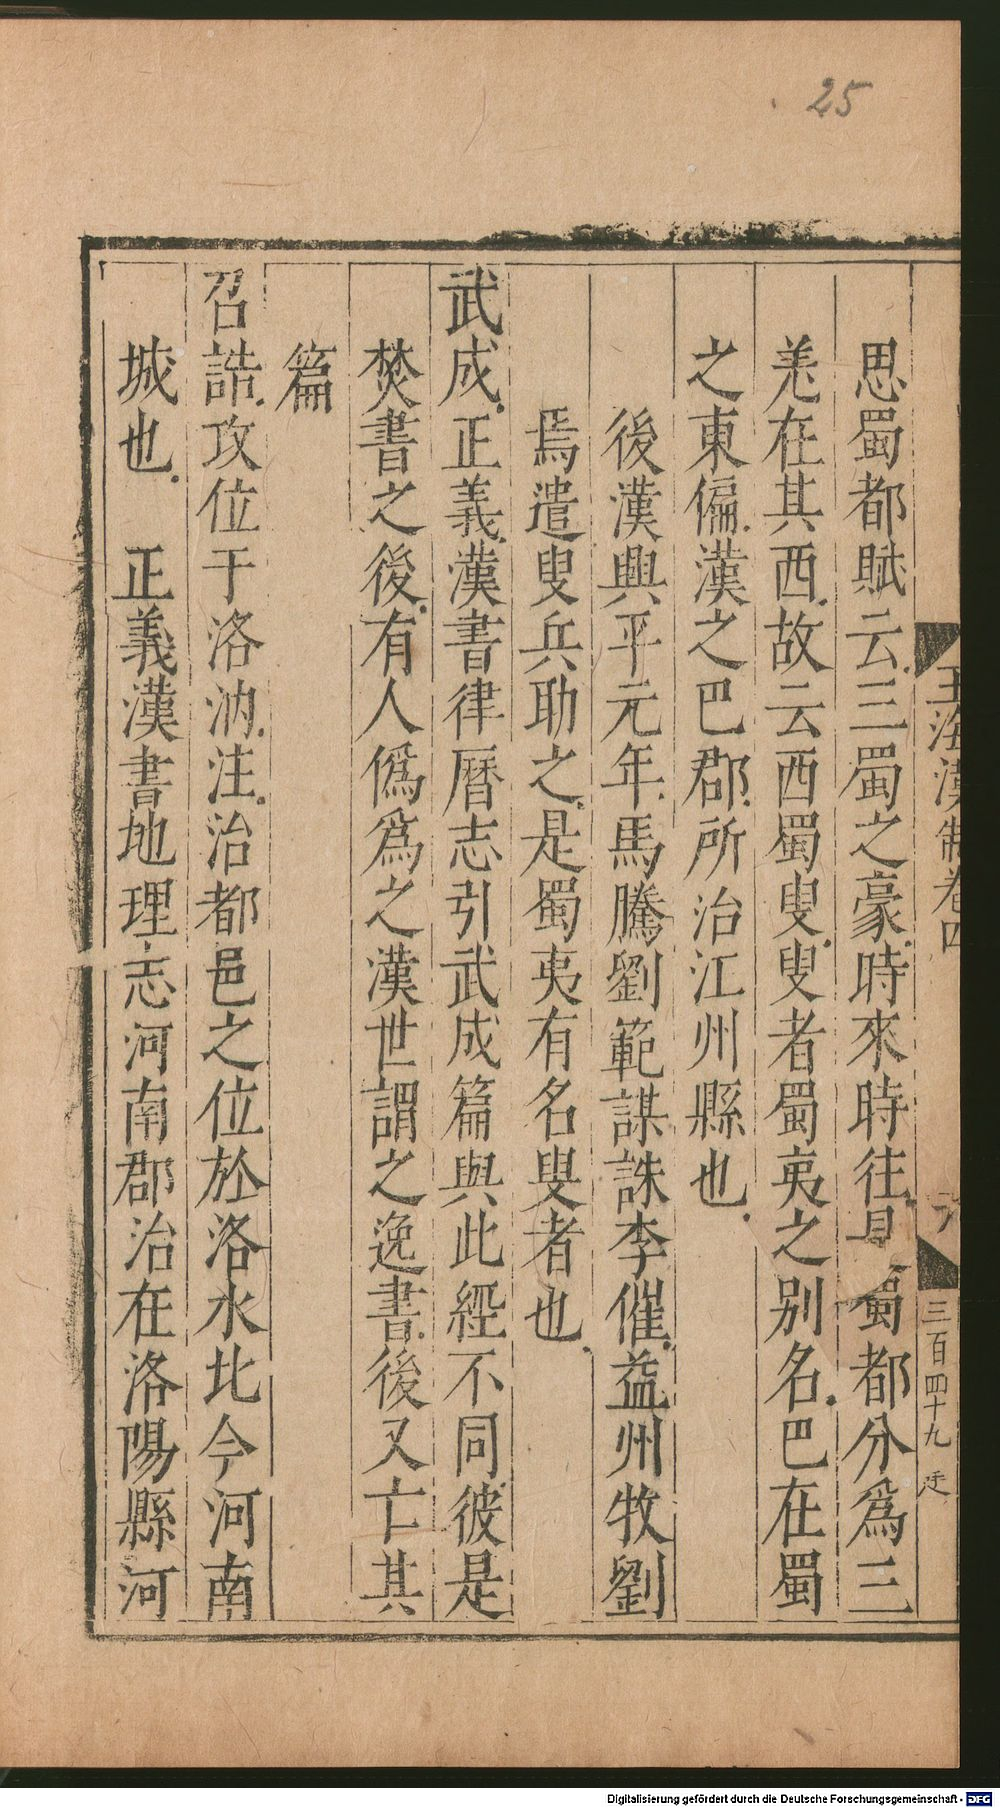 25
玉海漢制卷四
六
三百四十九
思蜀都賦云三蜀之豪時來時往是蜀都分爲三
羌在其西故云西蜀叟叟者蜀夷之别名巴在蜀
之東偏漢之巴郡所治江州縣也
後漢興平元年馬騰劉範謀誅李傕益州牧劉
焉遣叟兵助之是蜀夷有名叟者也
武成正義漢書律曆志引武成篇與此經不同彼是
焚書之後有人僞爲之漢世謂之逸書後又亡其
篇
召誥攻位于洛汭注治都邑之位於洛水北今河南
城也 正義漢書地理志河南郡治在洛陽縣河
Digitalisierung gefördert durch die Deutsche Forschungsgemeinschaft - DFG